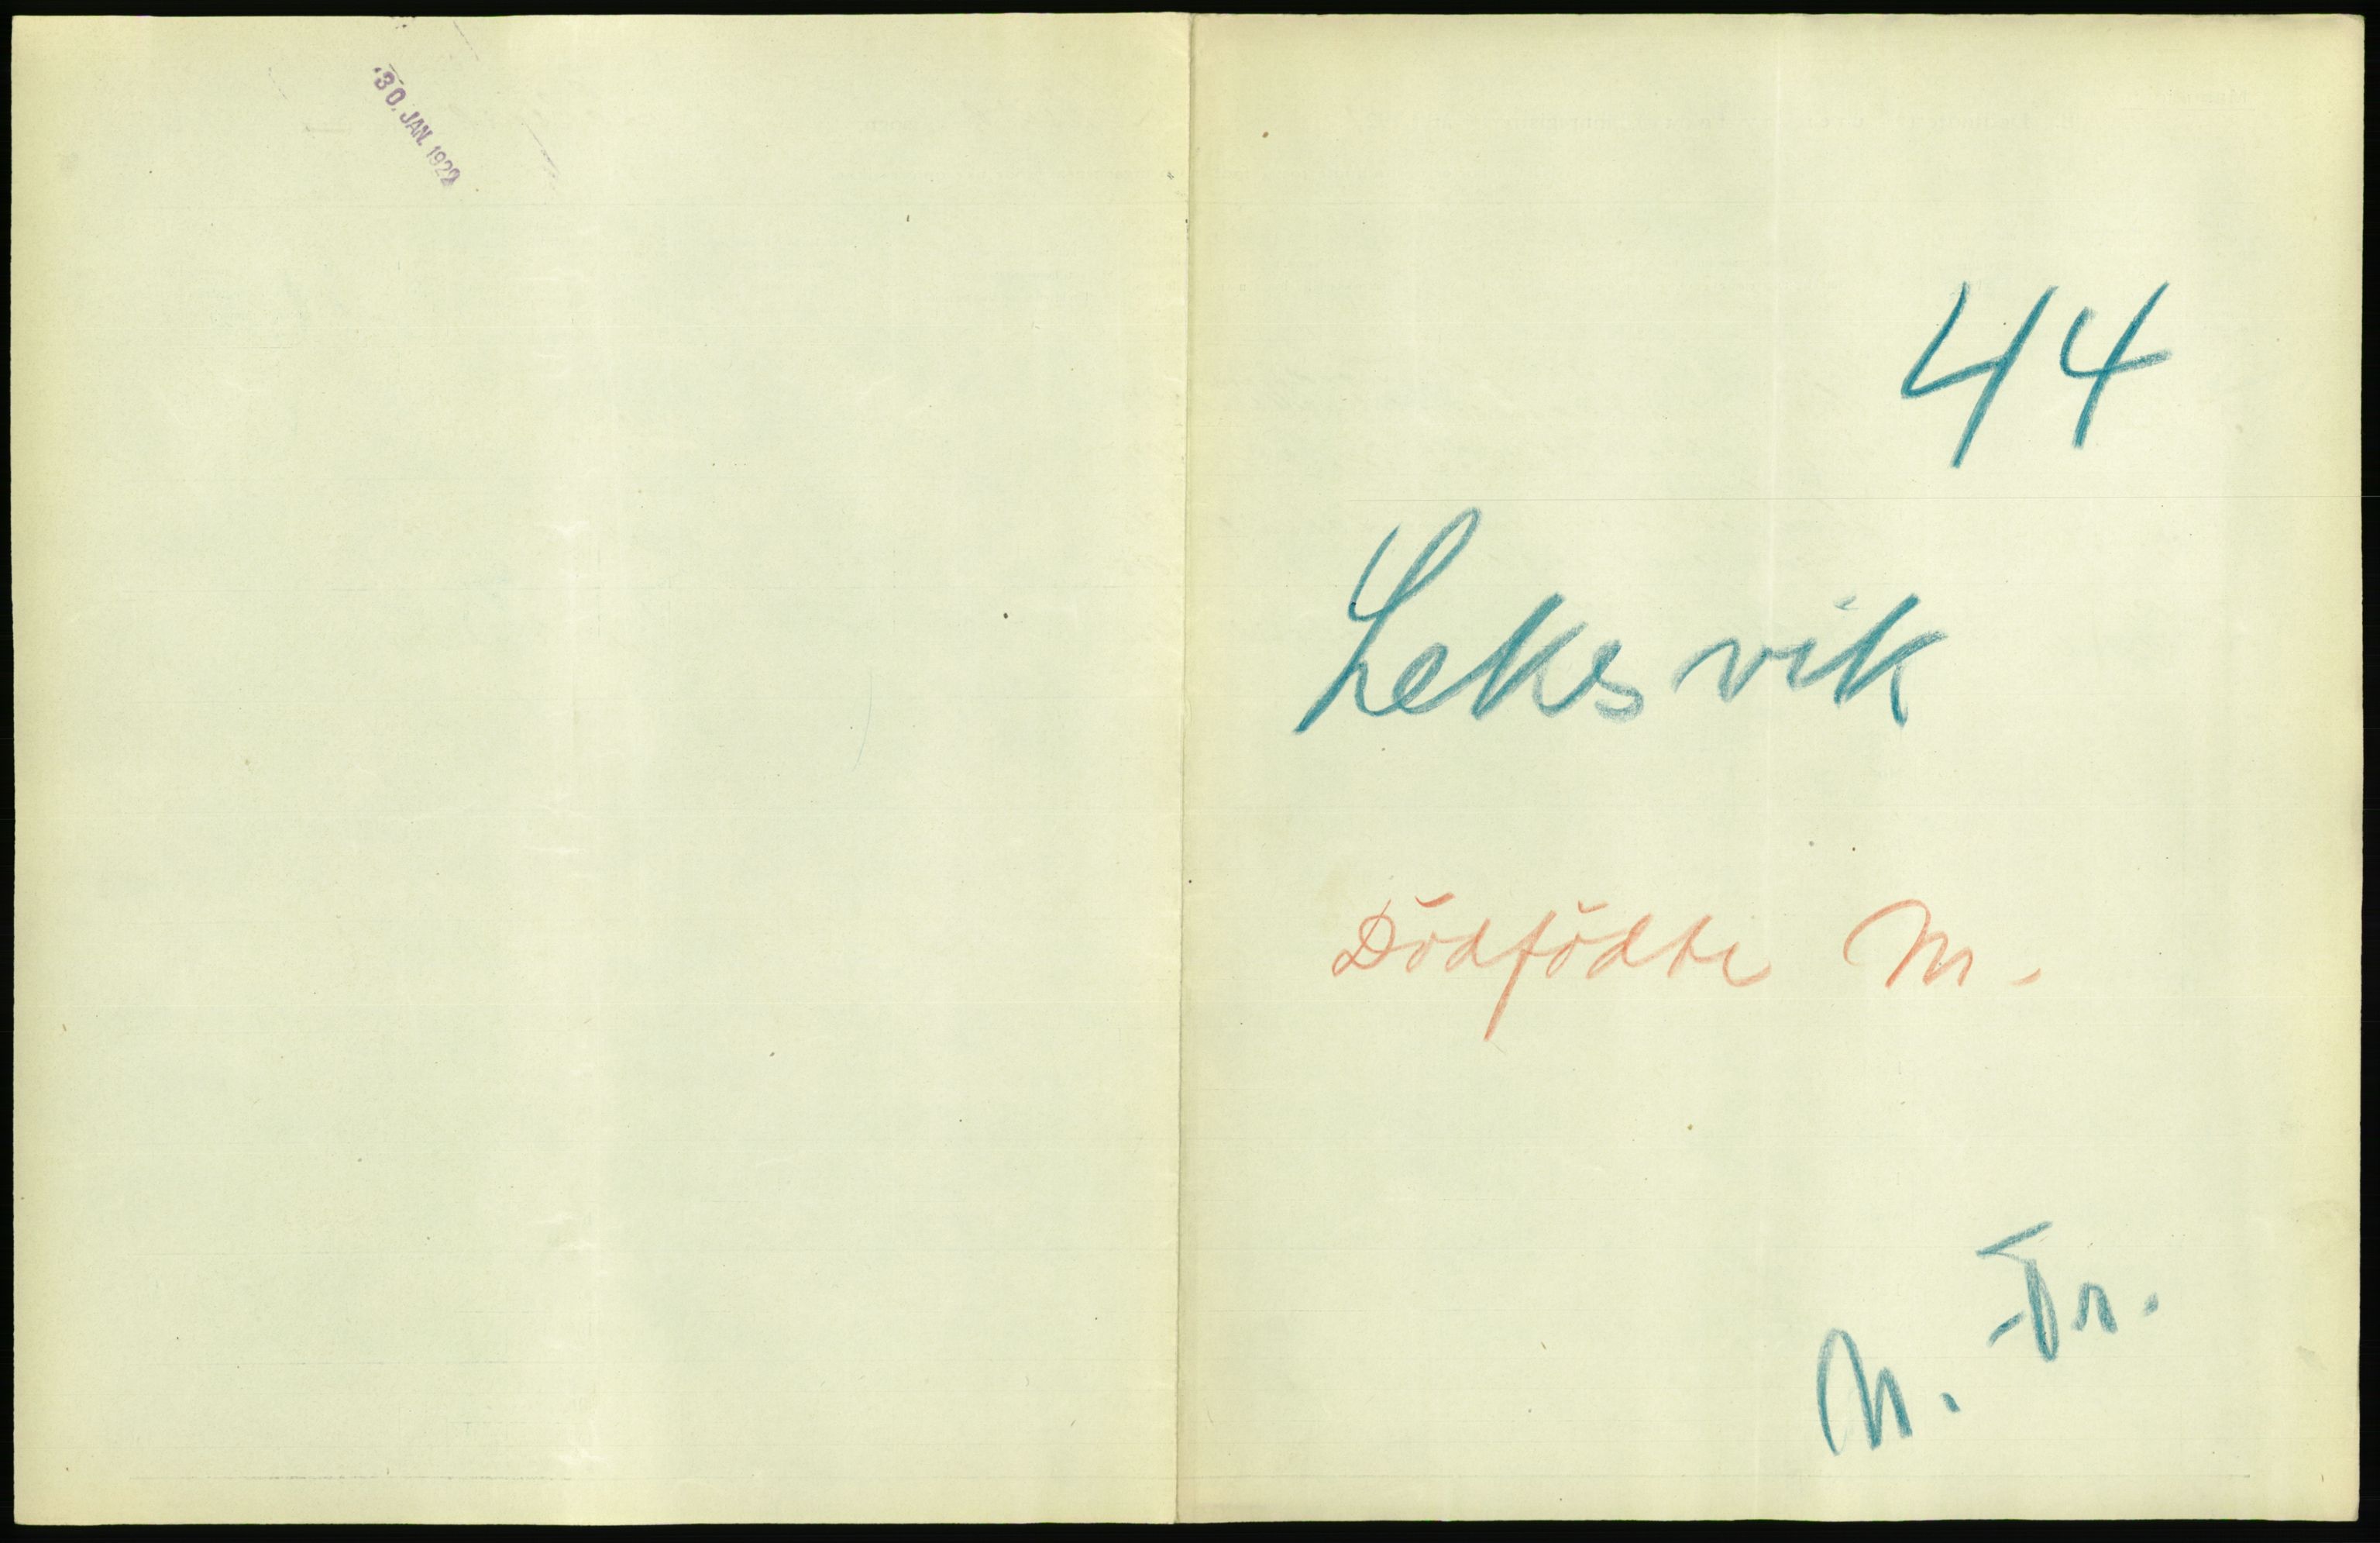 30. JAN. 1922
44
Leksvik
Dödfödte M.
N. Tr.